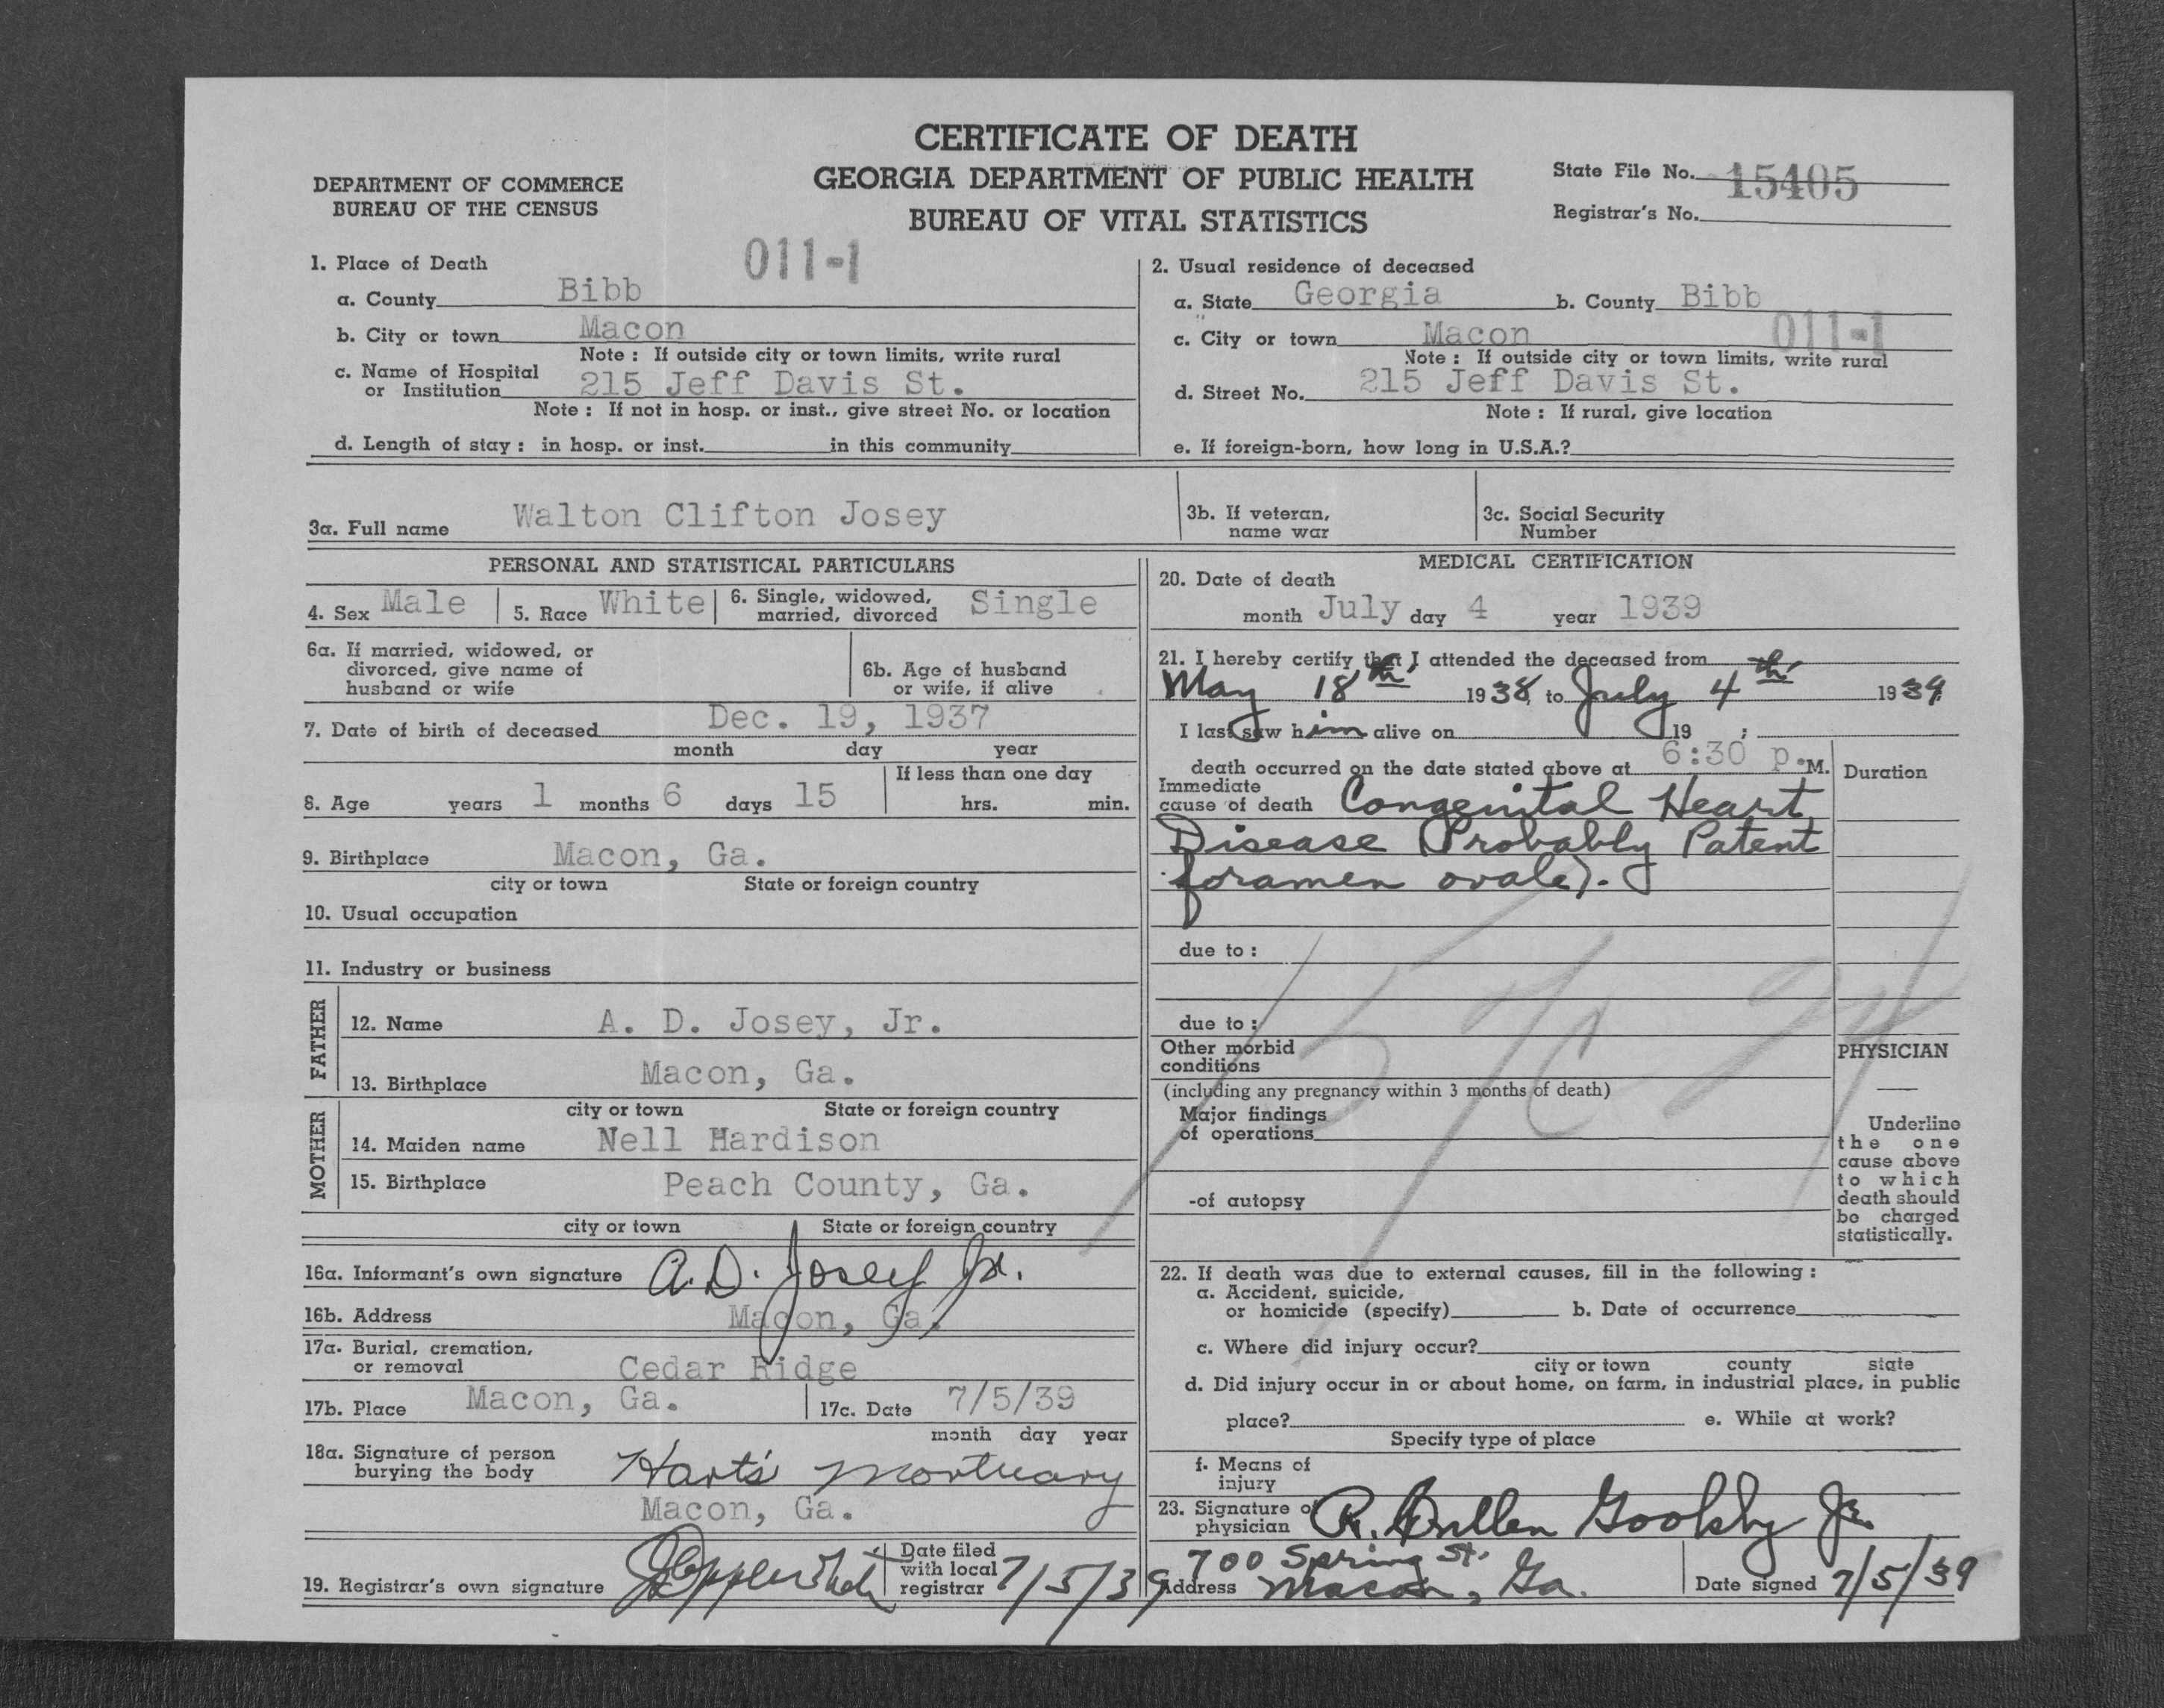 CERTIFICATE OF DEATH
GEORGIA DEPARTMENT OF PUBLIC HEALTH
BUREAU OF VITAL STATISTICS
DEPARTMENT OF COMMERCE
BUREAU OF THE CENSUS
State File No. 15405
Registrar's No.
011-1
1. Place of Death
a. County Bibb
b. City or town Macon
Note: If outside city or town limits, write rural
c. Name of Hospital
or Institution 215 Jeff Davis St.
Note: If not in hosp. or inst., give street No. or location
d. Length of stay: in hosp. or inst. in this community
2. Usual residence of deceased
a. State Georgia b. County Bibb
c. City or town Macon 011-1
Note: If outside city or town limits, write rural
d. Street No. 215 Jeff Davis St.
Note: If rural, give location
e. If foreign-born, how long in U.S.A.?
3a. Full name Walton Clifton Josey
3b. If veteran,
name war
3c. Social Security
Number
PERSONAL AND STATISTICAL PARTICULARS
4. Sex Male 5. Race White 6. Single, widowed,
married, divorced Single
6a. If married, widowed, or
divorced, give name of
husband or wife
6b. Age of husband
or wife, if alive
7. Date of birth of deceased Dec. 19, 1937
month day year
8. Age years 1 months 6 days 15
If less than one day
hrs. min.
9. Birthplace Macon, Ga.
city or town State or foreign country
10. Usual occupation
11. Industry or business
FATHER
12. Name A. D. Josey, Jr.
13. Birthplace Macon, Ga.
city or town State or foreign country
MOTHER
14. Maiden name Nell Hardison
15. Birthplace Peach County, Ga.
city or town State or foreign country
16a. Informant's own signature A. D. Josey Jr.
16b. Address Macon, Ga.
17a. Burial, cremation,
or removal Cedar Ridge
17b. Place Macon, Ga. 17c. Date 7/5/39
month day year
18a. Signature of person
burying the body Hart's Mortuary
Macon, Ga.
19. Registrar's own signature
Date filed
with local
registrar 7/5/39
MEDICAL CERTIFICATION
20. Date of death
month July day 4 year 1939
21. I hereby certify that I attended the deceased from
May 18th 1938, to July 4th 1939
I last saw him alive on 19 ;
death occurred on the date stated above at 6:30 p.M.
Duration
Immediate
cause of death Congenital Heart
Disease (Probably Patent
foramen ovale).
due to:
due to:
Other morbid
conditions
(including any pregnancy within 3 months of death)
Major findings
of operations
-of autopsy
PHYSICIAN
Underline
the one
cause above
to which
death should
be charged
statistically.
22. If death was due to external causes, fill in the following:
a. Accident, suicide,
or homicide (specify) b. Date of occurrence
c. Where did injury occur?
city or town county state
d. Did injury occur in or about home, on farm, in industrial place, in public
place? e. While at work?
Specify type of place
f. Means of
injury
23. Signature of
physician R. Cullen Goolsby Jr.
700 Spring St.
Address Macon, Ga.
Date signed 7/5/39